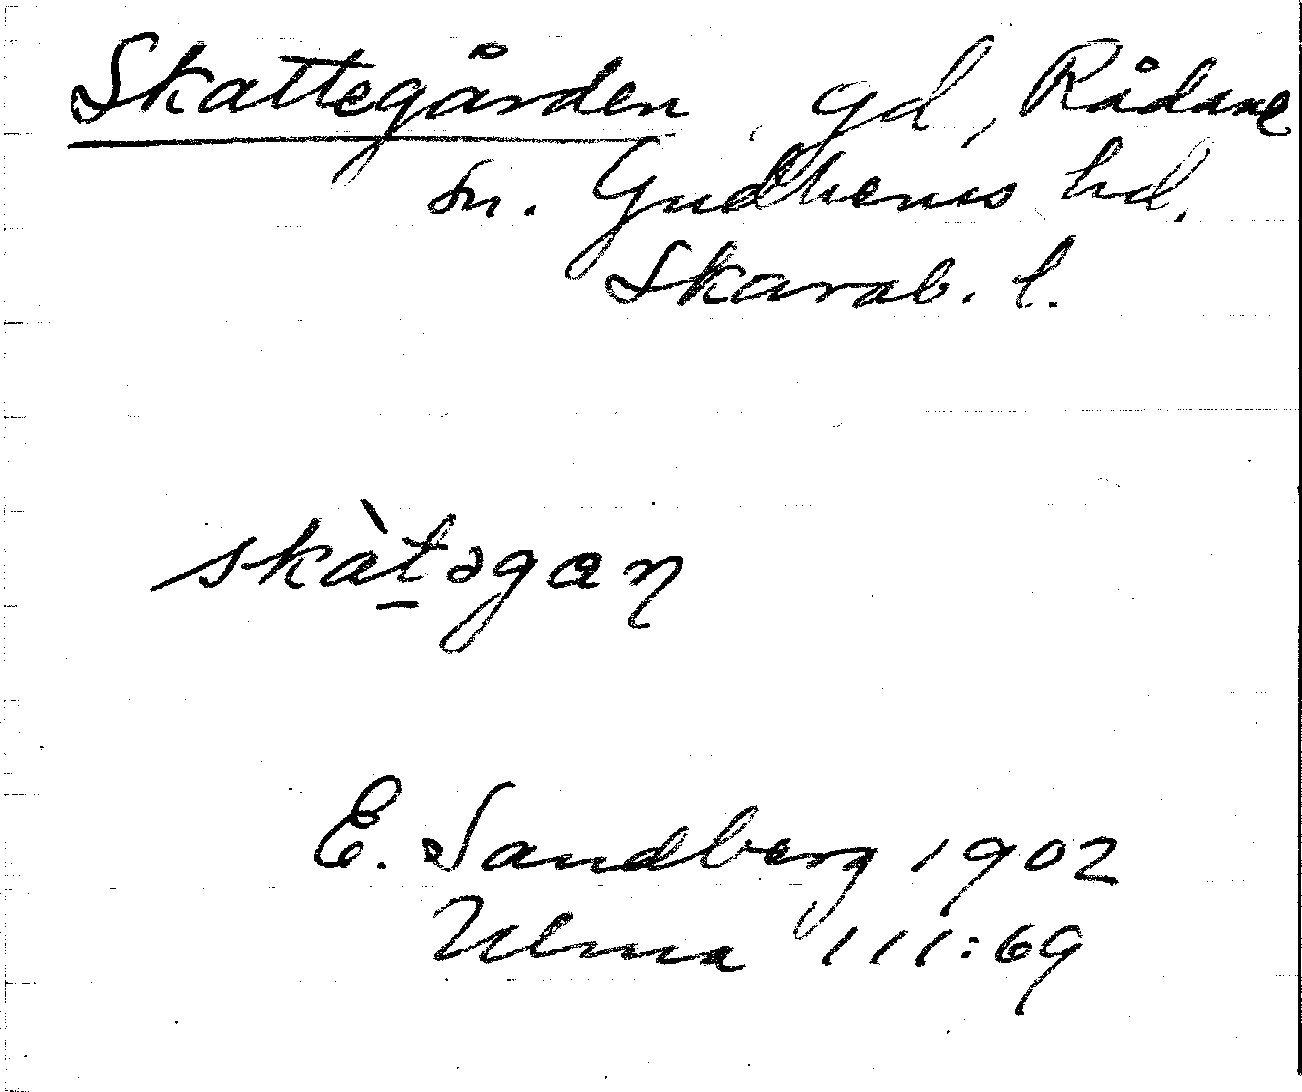 Skattegården, gd, Rådane
sn. Gudhems hd.
Skarab. l.
skàt̠əgaɳ
E. Sandberg 1902
Ulma 111:69